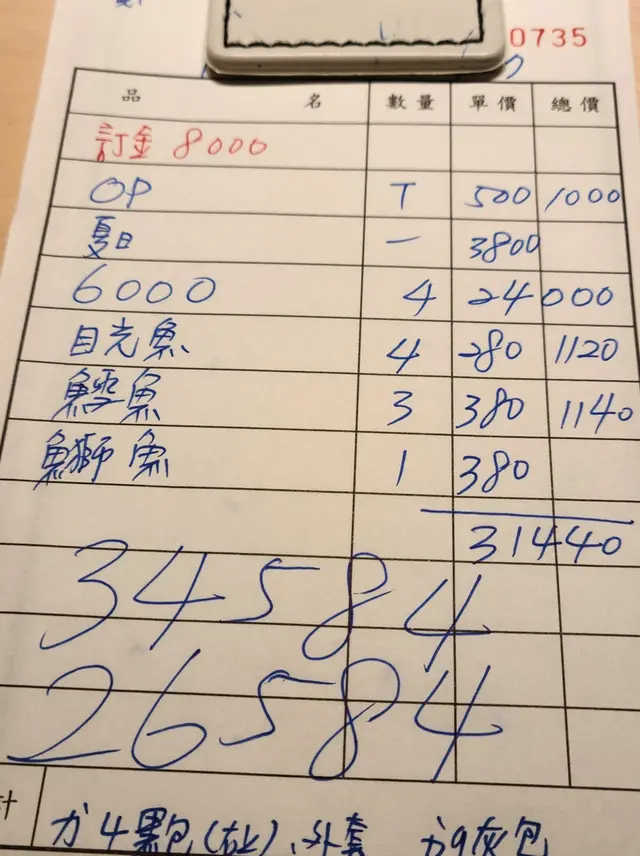 0735
品名 數量 單價 總價
訂金 8000
OP T 500 1000
夏日 一 3800
6000 4 24000
目光魚 4 280 1120
鱈魚 3 380 1140
鰤魚 1 380
31440
34584
26584
計
力4黑包(右上)、外套 力9灰包